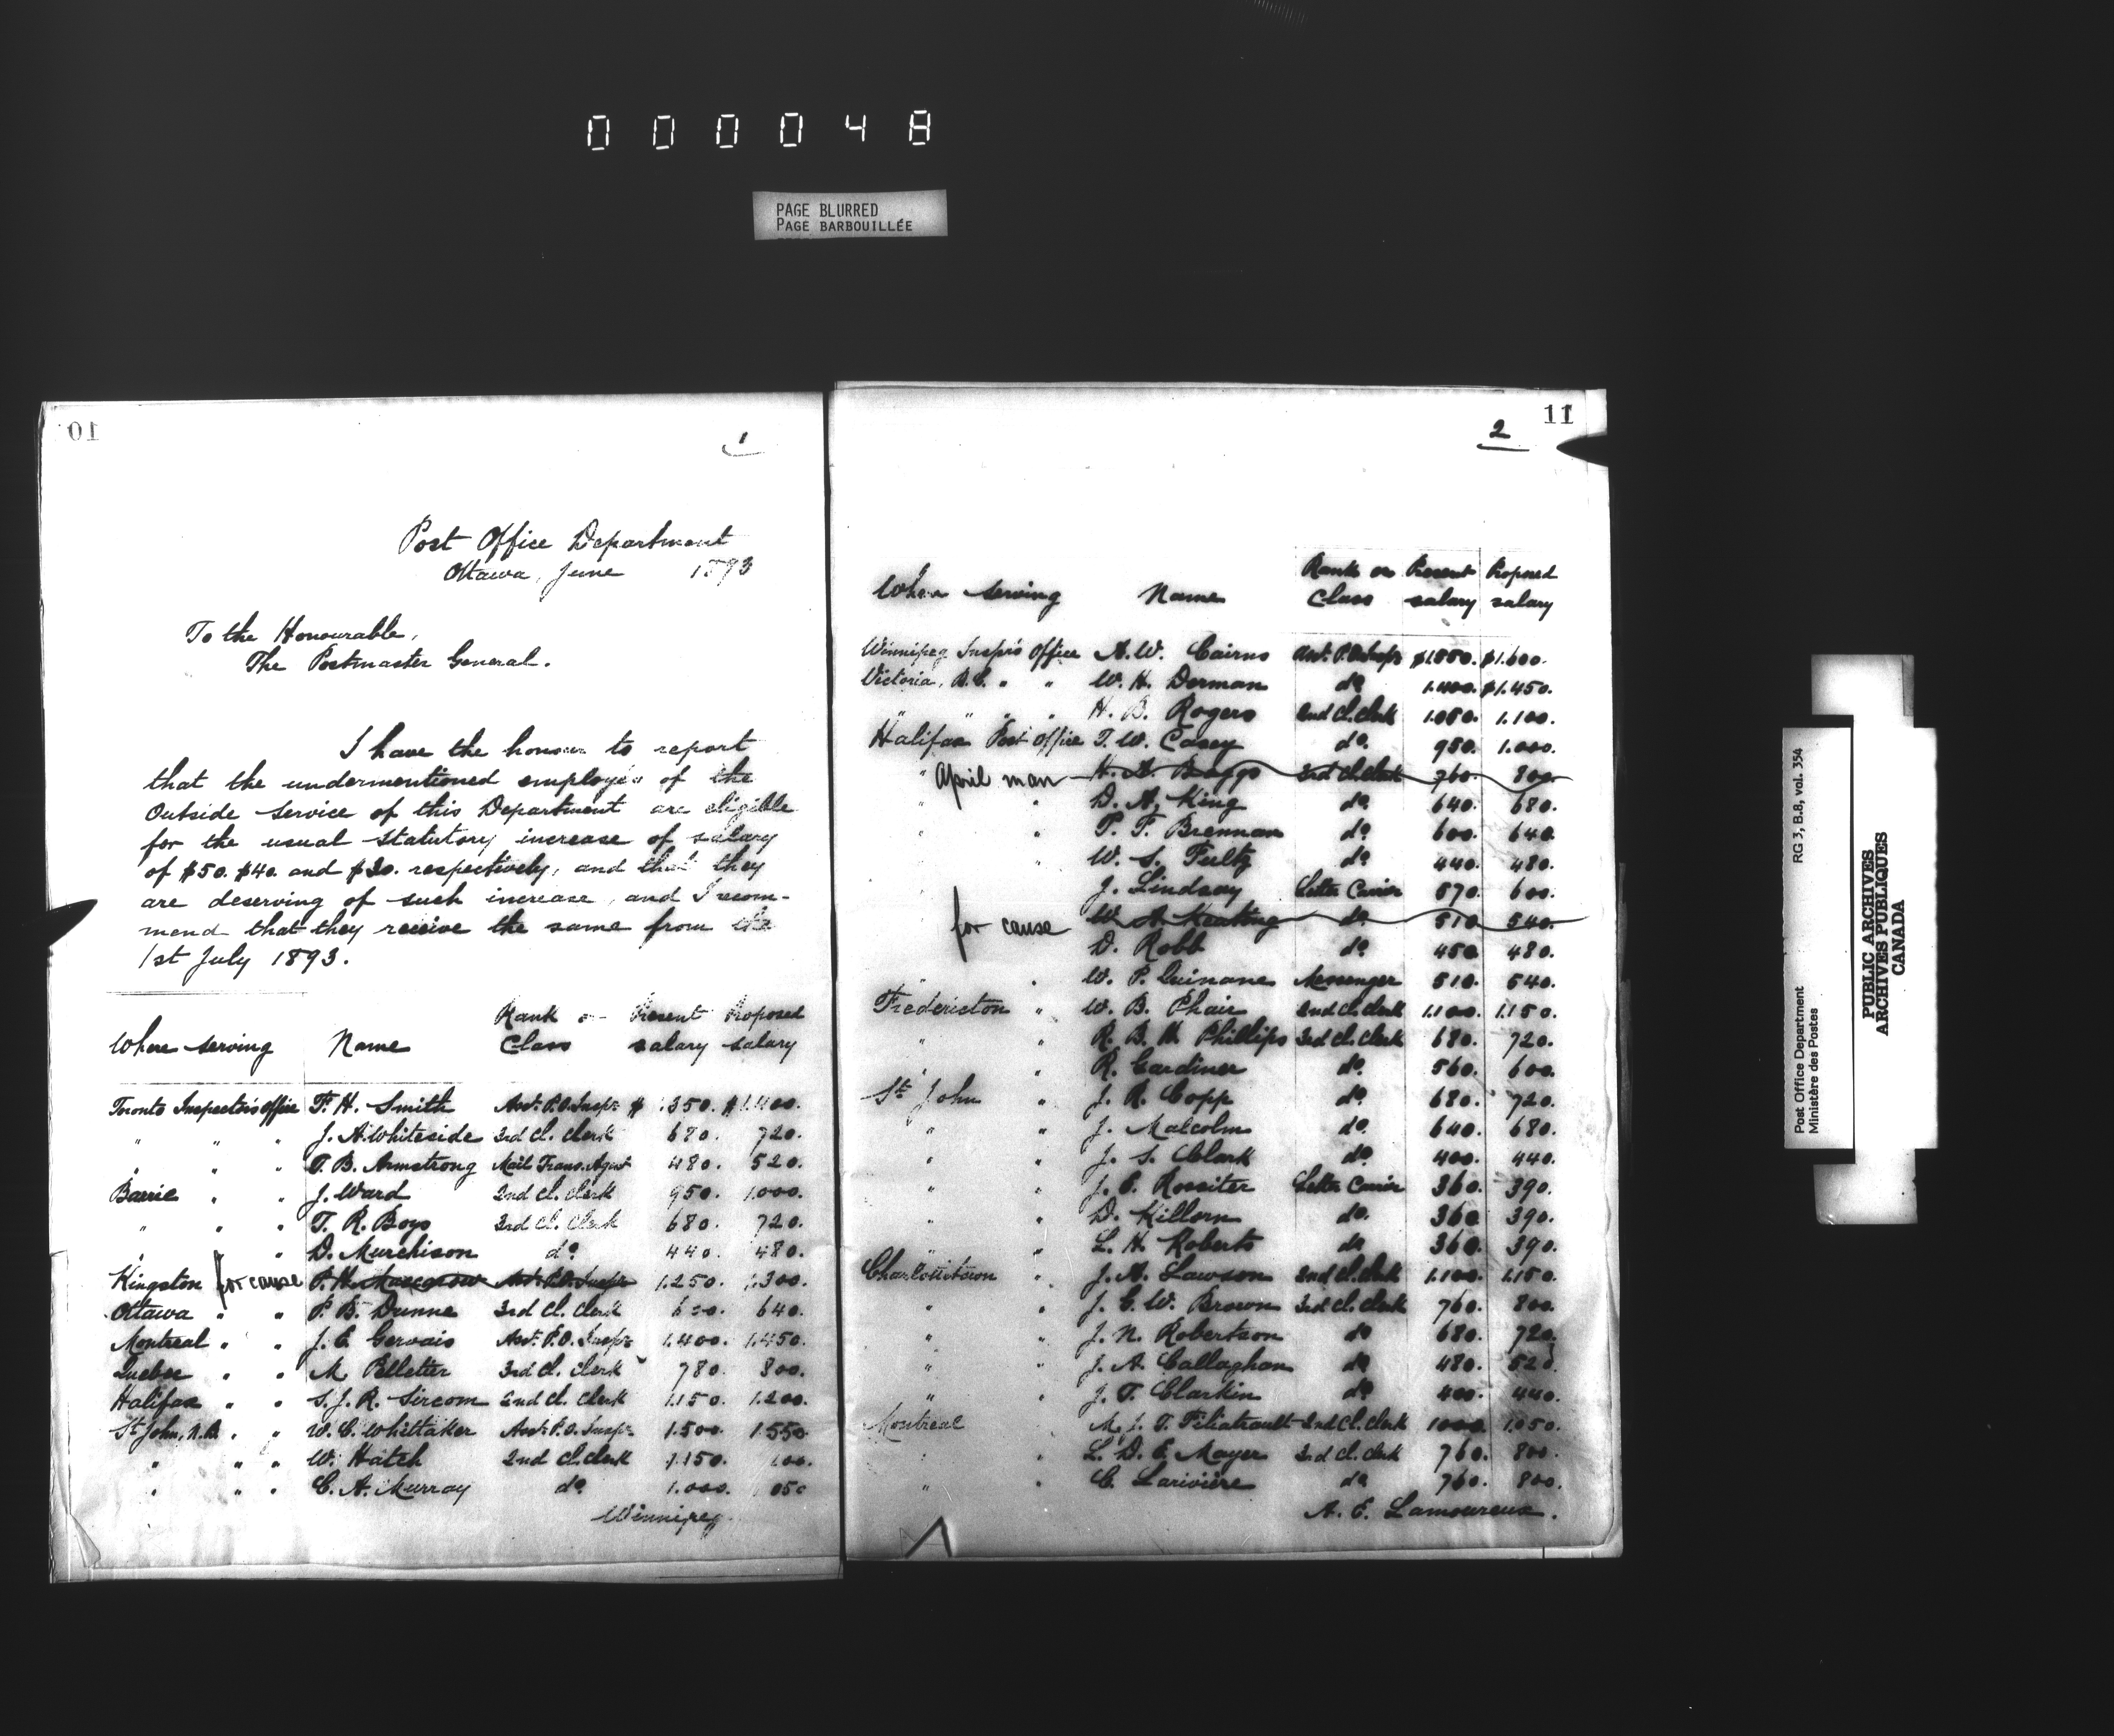 000048
PAGE BLURRED
PAGE BARBOUILLÉE
10
1
Post Office Department
Ottawa, June 1893
To the Honourable,
The Postmaster General.
I have the honour to report
that the undermentioned employés of the
Outside Service of this Department are eligible
for the usual Statutory increase of salary
of $50. $40. and $30. respectively, and that they
are deserving of such increase, and I recom-
mend that they receive the same from the
1st July 1893.
Where serving Name Rank or Class Present salary Proposed salary
Toronto Inspector's Office F. H. Smith Asst. P.O. Inspr. $1.350. $1.400.
" " " J. A. Whiteside 3rd Cl. Clerk 680. 720.
" " " T. B. Armstrong Mail Trans. Agent 480. 520.
Barrie " " J. Ward 2nd Cl. Clerk 950. 1.000.
" " " T. R. Boys 3rd Cl. Clerk 680. 720.
" " " D. Murchison do 440. 480.
Kingston for cause P. H. Asst. P.O. Inspr. 1.250. 1.300.
Ottawa " " P. B. Dunne 3rd Cl. Clerk 600. 640.
Montreal " " J. E. Gervais Asst. P.O. Inspr. 1.400. 1.450.
Quebec " " M. Pelletier 3rd Cl. Clerk 780. 800.
Halifax " " S. J. R. Sircom 2nd Cl. Clerk 1.150. 1.200.
St John, N.B. " " W. C. Whittaker Asst. P.O. Inspr. 1.500. 1.550
" " " W. Hatch 2nd Cl. Clerk 1.150. 00.
" " " C. A. Murray do 1.000. 050
Winnipeg
11
2
Where serving Name Rank or Class Present salary Proposed salary
Winnipeg Inspr's Office A. W. Cairns Asst. P.O. Inspr $1550. $1.600.
Victoria, B.C. " " W. H. Dorman do 1.400. $1.450.
" " " " H. B. Rogers 2nd Cl. Clerk 1.050. 1.100.
Halifax Post Office T. W. Casey do. 950. 1.000.
" April man H. A. Boggs 3rd Cl. Clerk 760. 800.
" " D. A. King do. 640. 680.
" " P. F. Brennan do 600. 640.
" " W. S. Fultz do 440. 480.
J. Lindsay Letter Carrier 570. 600.
for cause W. A. Keating do. 510 540.
D. Robb do 450 480.
" " W. P. Quinane Messenger 510. 540.
Fredericton " W. B. Phair 2nd Cl. Clerk 1.100. 1.150.
" " R. B. H. Phillips 3rd Cl. Clerk 680. 720.
" " R. Gardiner do. 560. 600.
St John " J. R. Copp do. 680. 720.
" " J. Malcolm do. 640. 680.
" " J. S. Clark do. 400. 440.
" " J. E. Rossiter Letter Carrier 360. 390.
" " D. Killorn do. 360 390.
" " L. H. Roberts do 360. 390.
Charlottetown " J. A. Lawson 2nd Cl. Clerk 1.100. 1.150.
" " J. G. W. Brown 3rd Cl. Clerk 760. 800.
" " J. N. Robertson do 680. 720.
" " J. A. Callaghan do 480. 520.
" " J. T. Clarkin do 400. 440.
Montreal " M. J. T. Filiatrault 2nd Cl. Clerk 1000 1.050.
" " L. D. E. Mayer 3rd Cl. Clerk 760. 800.
" " C. Larivière do 760. 800.
A. E. Lamoureux.
Post Office Department RG 3, B.8, vol. 354
Ministère des Postes
PUBLIC ARCHIVES
ARCHIVES PUBLIQUES
CANADA